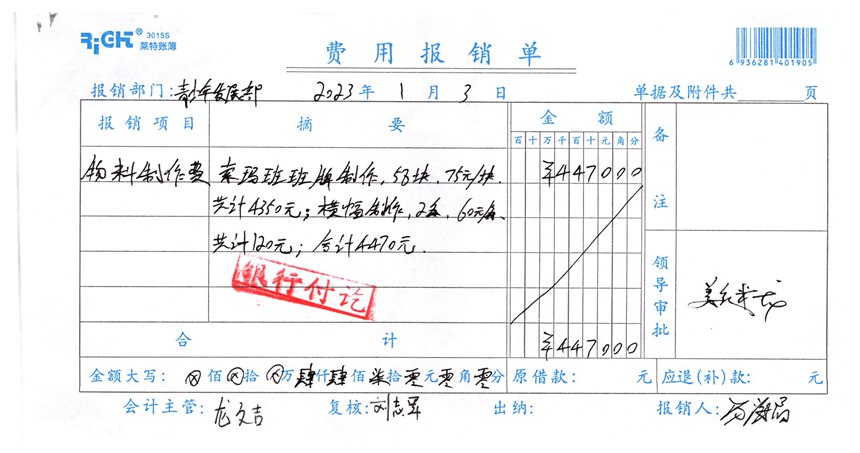 RiCH® 3015S
莱特账簿
费用报销单
6 936281 401905
报销部门: 青少年发展部 2023年1月3日 单据及附件共 页
报销项目 摘要 金额 备注
百十万千百十元角分
物料制作费 索玛班班牌制作,58块,75元/块, ¥447000
共计4350元;横幅制作,2条,60元/条
共计120元;合计4470元.
银行付讫
领导审批
合计 ¥447000
金额大写: ⊗佰⊗拾⊗万肆仟肆佰柒拾零元零角零分 原借款: 元 应退(补)款: 元
会计主管: 龙文吉 复核: 出纳: 报销人: